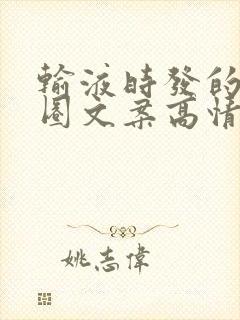 輸液時發的
圖文案高情
姚志偉